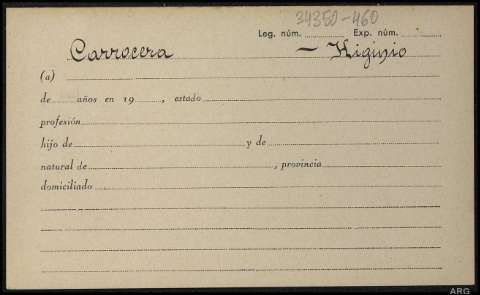 34350-460
Leg. núm. Exp. núm.
Carrocera — Higinio
(a)
de años en 19 , estado
profesión
hijo de y de
natural de , provincia
domiciliado
ARG